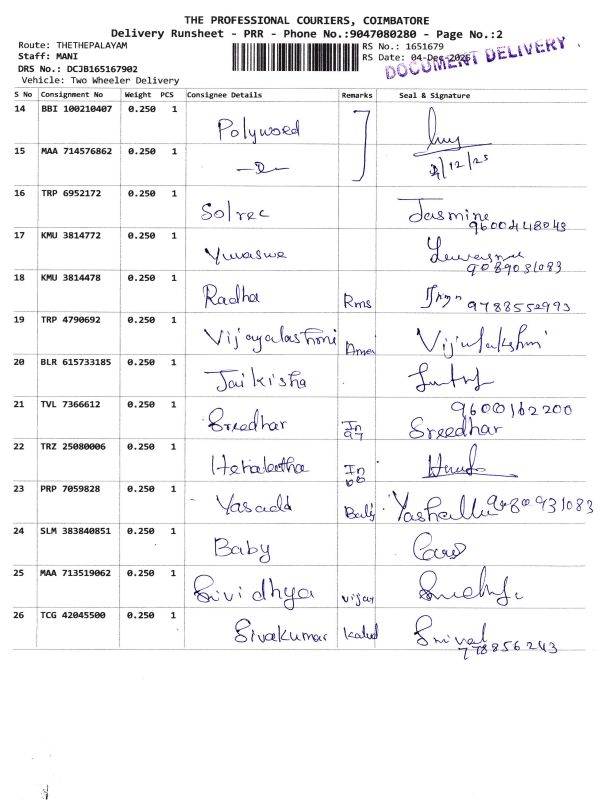 THE PROFESSIONAL COURIERS, COIMBATORE
Delivery Runsheet - PRR - Phone No.:9047080280 - Page No.:2
Route: THETHEPALAYAM RS No.: 1651679
Staff: MANI RS Date: 04-Dec-2025
DOCUMENT DELIVERY
DRS No.: DCJB165167902
Vehicle: Two Wheeler Delivery
S No Consignment No Weight PCS Consignee Details Remarks Seal & Signature
14 BBI 100210407 0.250 1 Polyword
15 MAA 714576862 0.250 1 /12/25
16 TRP 6952172 0.250 1 Solrec Jasmine
9600448043
17 KMU 3814772 0.250 1
9089031083
18 KMU 3814478 0.250 1 Radha Rms 9788552993
19 TRP 4790692 0.250 1 Vijayalashmi Vijayalakshmi
20 BLR 615733185 0.250 1 Jaikisha
21 TVL 7366612 0.250 1 Sreedhar 9600162200
Sreedhar
22 TRZ 25080006 0.250 1
23 PRP 7059828 0.250 1 Yasada 9080931083
24 SLM 383840851 0.250 1 Baby
25 MAA 713519062 0.250 1 Srividhya Vijay
26 TCG 42045500 0.250 1 Sivakumar
778856243